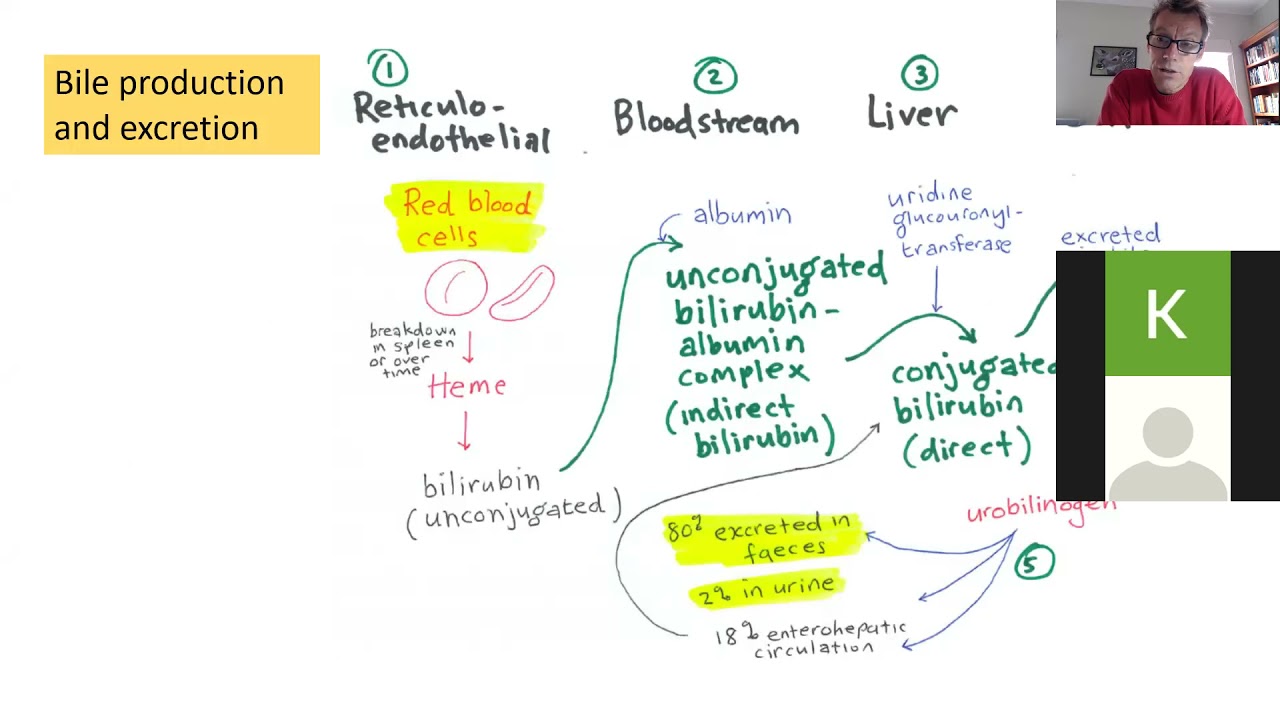 Bile production
and excretion
1
Reticulo-
endothelial
Red blood
cells
breakdown
in spleen
or over
time
Heme
bilirubin
(unconjugated)
2
Bloodstream
albumin
unconjugated
bilirubin-
albumin
complex
(indirect
bilirubin)
3
Liver
uridine
glucouronyl-
transferase
conjugated
bilirubin
(direct)
excreted
K
urobilinogen
5
80% excreted in
faeces
2% in urine
18% enterohepatic
circulation